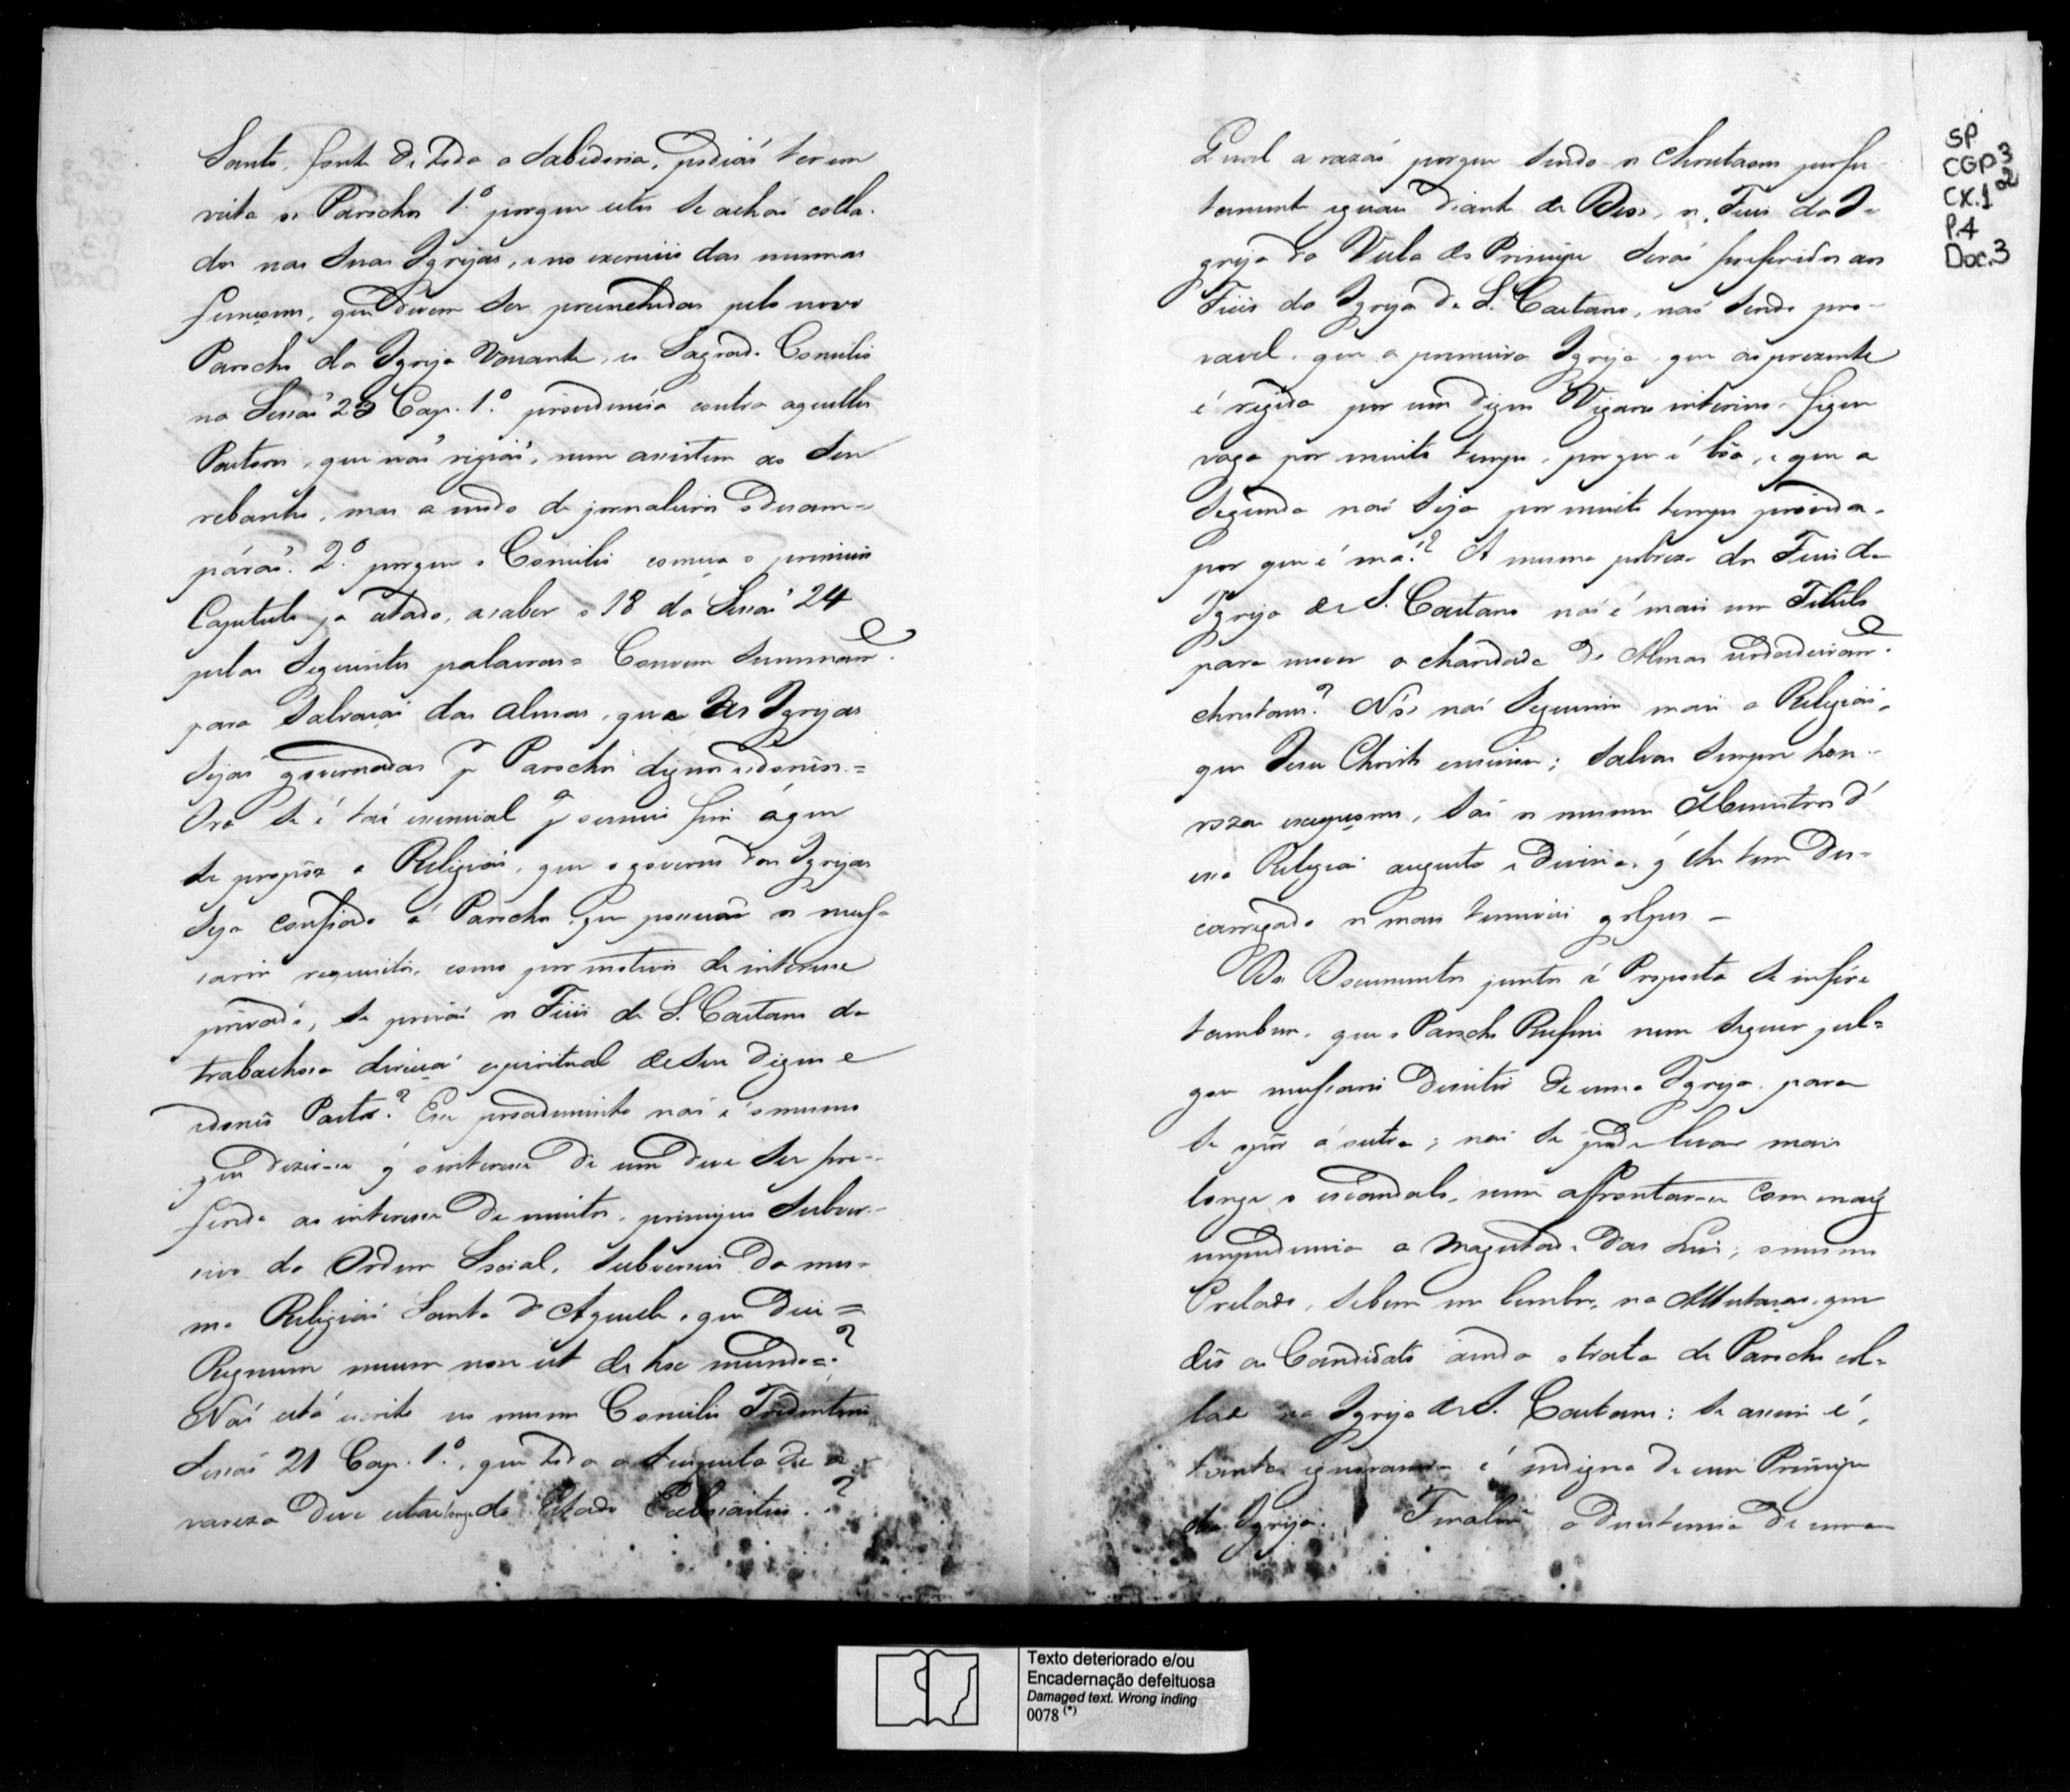 Santo, fonte de toda a Sabedoria, podiaõ ter em
vista os Parochos 1.º porque estes se achaõ colla-
dos nas suas Igrejas, e no exercicio das mesmas
funçoens, que devem ser preenchidas pelo novo
Parocho da Igreja Vacante, e o Sagrado Concilio
na Sessaõ 23 Cap. 1.º providencía contra aquelles
Pastores, que naõ regiaõ, nem assistem ao seu
rebanho, mas a modo de jornaleiros o desam-
páraõ. 2.º porque o Concilio começa o primeiro
Capitulo ja citado, a saber o 18 da Sessaõ 24
pelas seguintes palavras = Convem summamᵉ
para salvaçaõ das almas, que as Igrejas
sejaõ governadas pʳ Parochos dignos e idoneos =
Ora se é taõ essencial pᵃ o fim á que
se propõe a Religiaõ, que o governo das Igrejas
seja confiado á Parochos, que possuaõ os neces-
sarios requisitos, como por motivos de interesse
privado, se privaõ os Fieis de S. Caetano da
trabalhosa direcçaõ espiritual de seu digno e
idoneo Pastor? Esse procedimento naõ é o mesmo
que dizer-se q̃ o interesse de um deve ser pre-
ferido ao interesse de muitos, principio subver-
sivo da Ordem Social, subversivo da mes-
ma Religiaõ Santa d'Aquelle, que disse =
Regnum meum non est de hoc mundo =?
Naõ está escrito no mesmo Concilio Tridentino
Sessaõ 21 Cap. 1.º, que toda a suspeita de a-
vareza deve estar longe do Estado Ecclesiastico?
Qual a razaõ porque sendo os Christaons perfei-
tamente iguaes diante de Deos, os Fieis da I-
greja da Villa do Principe seraõ preferidos aos
Fieis da Igreja de S. Caetano, naõ sendo pro-
vavel, que a primeira Igreja, que ao prezente
é regida por um digno Vigario interino, fique
vaga por muito tempo, porque é bôa, e que a
segunda naõ seja por muito tempo provida,
por que é má!? A mesma pobreza dos Fieis da
Igreja de S. Caetano naõ é mais um Titulo
para mover a charidade de Almas verdadeiramᵉ
christans? Nós naõ seguimos mais a Religiaõ,
que Jesu Christo ensinou; salvas sempre hon-
rozas excepçoens, saõ os mesmos Ministros d'
essa Religiaõ augusta e divina, q̃ lhe tem des-
carregado os mais terriveis golpes. —
Dos Documentos juntos á Proposta se infére
tambem, que o Parocho Rufino nem sequer jul-
gou necessario desistir de uma Igreja, para
se opôr á outra; naõ se póde levar mais
longe o escandalo, nem affrontar-se com maior
impudencia a Magestade das Leis; o mesmo
Prelado, se bem me lembro, na Attestaçaõ, que
deo ao Candidato ainda o trata de Parocho col-
lado na Igreja de S. Caetano: se assim é,
tanta ignorancia é indigna de um Principe
da Igreja. Finalmᵉ a desistencia de uma
SP
CGP3
CX.1
02
P.4
Doc.3
Texto deteriorado e/ou
Encadernação defeituosa
Damaged text. Wrong inding
0078 (*)